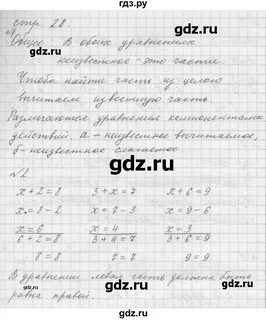 гдз.ру
стр 28.
№1
Общее - В обоих уравнениях
неизвестное - это части.
Чтобы найти часть из целого
вычитаем известную часть
Различаются уравнения компонентами
действий, а - неизвестное вычитаемое,
б - неизвестное слагаемое
№2
x+2=8 3+x=7 x+6=9
x=8-2 x=7-3 x=9-6
x=6 x=4 x=3
6+2=8 3+4=7 3+6=9
8=8 7=7 9=9
В уравнении левая часть должна быть
равна правой.
gdz.ru
gdz.ru
gdz.ru
gdz.ru
gdz.ru
gdz.ru